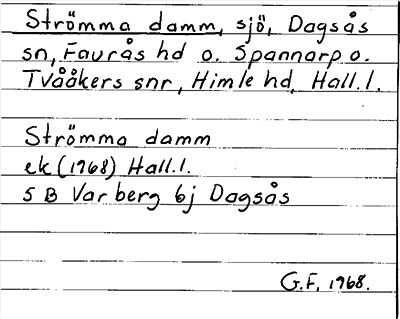 Strömma damm, sjö, Dagsås
sn, Faurås hd o. Spannarp o.
Tvååkers snr, Himle hd, Hall. l.
Strömma damm
ek (1968) Hall. l.
5 B Varberg 6j Dagsås
G.F, 1968.